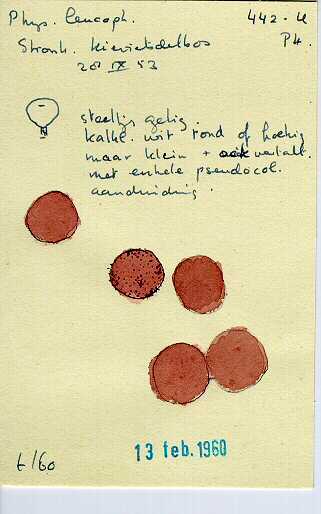 Phys. leucoph. 442-4
Stronk. Kievietsdelbos Ph.
28 IX 53
steeltje gelig.
kalkl. wit rond of hoekig
maar klein + vertakt.
met enkele pseudocol.
aanduiding.
t/60
13 feb. 1960